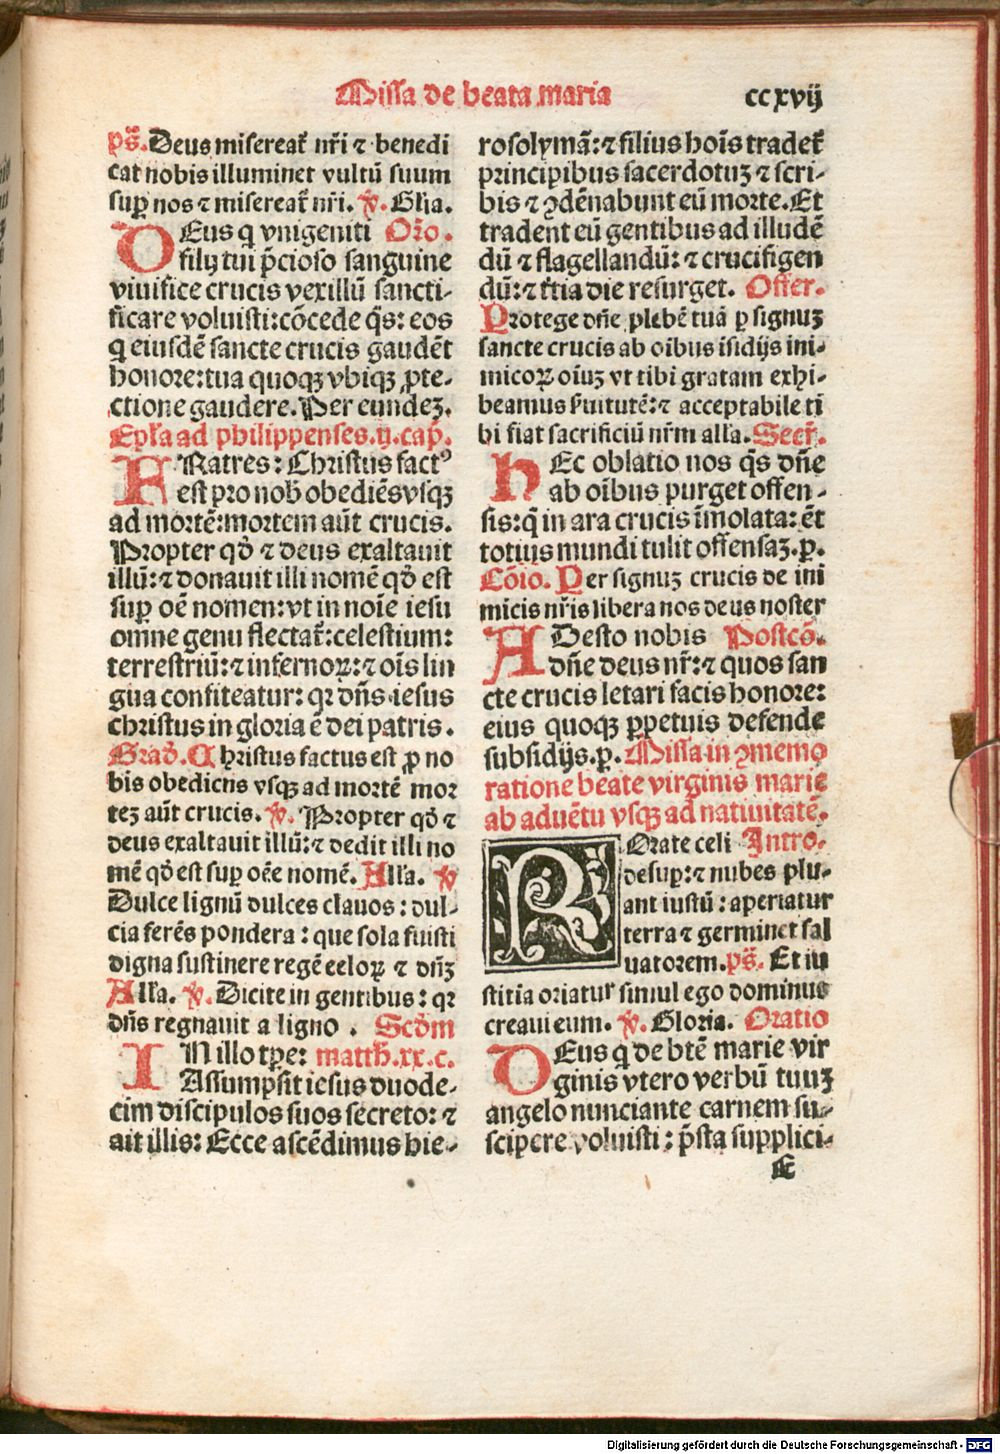 Missa de beata maria
ccxvij
ps̄. Deus misereat᷑ nr̄i ⁊ benedi
cat nobis illuminet vultū suum
sup̱ nos ⁊ misereat᷑ nr̄i. ℣. Gl̄ia.
DEus q̄ vnigeniti Or̄o.
filij tui p̄cioso sanguine
viuifice crucis vexillū sancti-
ficare voluisti: cōcede q̄s: eos
q̄ eiusdē sancte crucis gaudēt
honore: tua quoqꝫ vbiqꝫ ꝓte-
ctione gaudere. Per eundeꝫ.
Epl̄a ad philippenses. ij. cap̄.
FRatres: Christus factꝰ
est pro nob̄ obediēs vsqꝫ
ad mortē: mortem aūt crucis.
Propter qd̄ ⁊ deus exaltauit
illū: ⁊ donauit illi nomē qd̄ est
sup̱ oē nomen: vt in noīe iesu
omne genu flectat᷑: celestium:
terrestriū: ⁊ infernoꝝ: ⁊ oīs lin
gua confiteatur: qꝛ dn̄s iesus
christus in gloria ē dei patris.
Grad̄. Christus factus est ꝓ no
bis obediens vsqꝫ ad mortē mor
teꝫ aūt crucis. ℣. Propter qd̄ ⁊
deus exaltauit illū: ⁊ dedit illi no
mē qd̄ est sup̱ oēe nomē. All̄a. ℣
Dulce lignū dulces clauos: dul-
cia ferēs pondera: que sola fuisti
digna sustinere regē celoꝝ ⁊ dn̄ꝫ
All̄a. ℣. Dicite in gentibus: qꝛ
dn̄s regnauit a ligno. Scd̄m
IN illo tp̄e: matth̄. xx. c.
Assumpsit iesus duode-
cim discipulos suos secreto: ⁊
ait illis: Ecce ascēdimus hie-
rosolymā: ⁊ filius hoīs tradet᷑
principibus sacerdotuꝫ ⁊ scri-
bis ⁊ ꝯdēnabunt eū morte. Et
tradent eū gentibus ad illudē
dū ⁊ flagellandū: ⁊ crucifigen
dū: ⁊ t̄tia die resurget. Offer.
Protege dn̄e plebē tuā p̱ signuꝫ
sancte crucis ab oībus īsidijs ini-
micoꝝ oīuꝫ vt tibi gratam exhi-
beamus s̄uitutē: ⁊ acceptabile ti
bi fiat sacrificiū nr̄m all̄a. Secr̄.
HEc oblatio nos q̄s dn̄e
ab oībus purget offen-
sis: q̄ in ara crucis īmolata: ēt
totius mundi tulit offensaꝫ. p̱.
Cōio. Per signuꝫ crucis de ini
micis nr̄is libera nos deus noster
ADesto nobis Postcō.
dn̄e deus nr̄: ⁊ quos san
cte crucis letari facis honore:
eius quoqꝫ p̱petuis defende
subsidijs. p̱. Missa in ꝯmemo
ratione beate virginis marie
ab aduētu vsqꝫ ad natiuitatē.
ROrate celi Intro.
desup̱: ⁊ nubes plu-
ant iustū: aperiatur
terra ⁊ germinet sal
uatorem. ps̄. Et iu
stitia oriatur simul ego dominus
creaui eum. ℣. Gloria. Oratio
DEus q̄ de btē marie vir
ginis vtero verbū tuuꝫ
angelo nunciante carnem su-
scipere voluisti: p̄sta supplici-
E
Digitalisierung gefördert durch die Deutsche Forschungsgemeinschaft - DFG